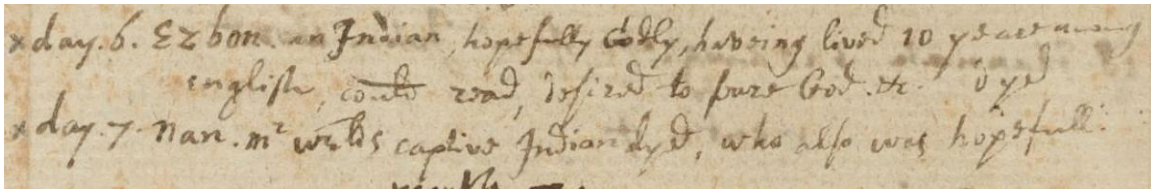 x day. 6. Ezbon. an Indian, hopefully Godly, having lived 10 yeare among
english, could read, desired to God. &c. Dyed
x day. 7. Nan. mr captive Indian dyed, who also was hopefull.